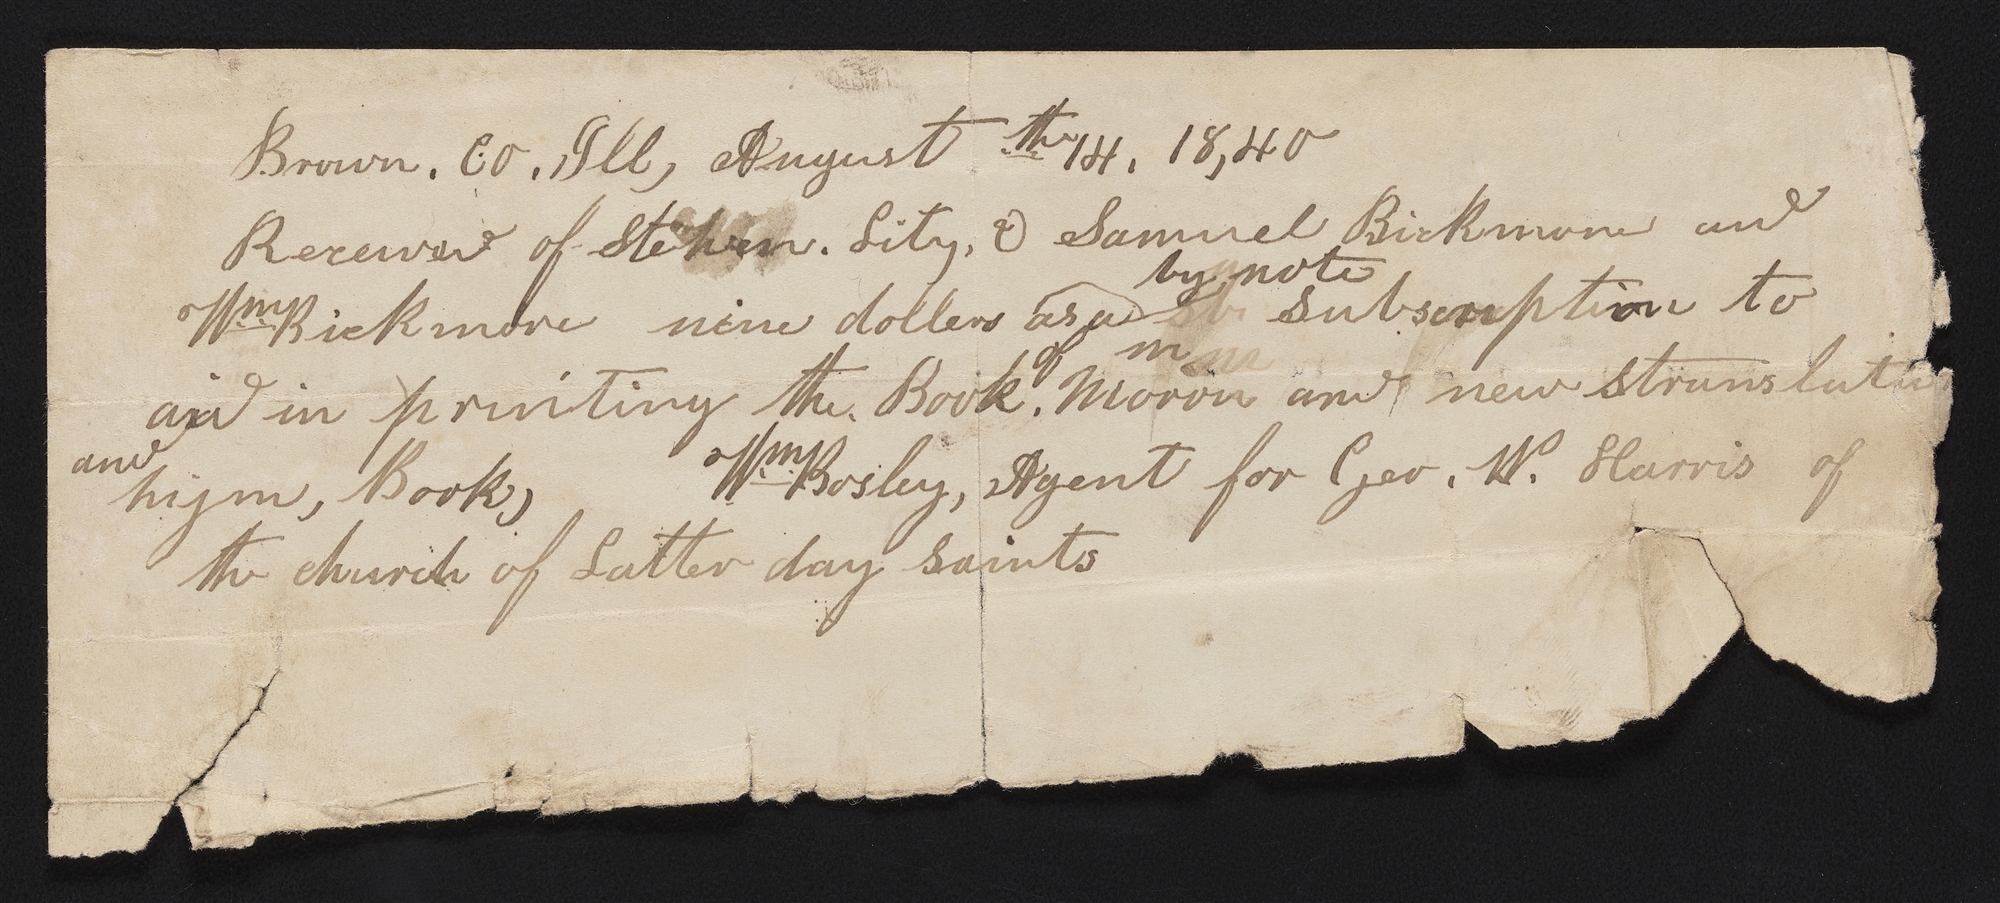 Brown. Co. Ill, August th 14. 18,40
Receivd of Stephen. Lity, & Samuel Bickmore and
by note
Wm Bickmore nine dollers as a subscription to
aid in printing the. Book. of Mormon and new translati
and
hijm, Book, Wm Bosley, Agent for Geo. W. Harris of
the church of Latter day saints